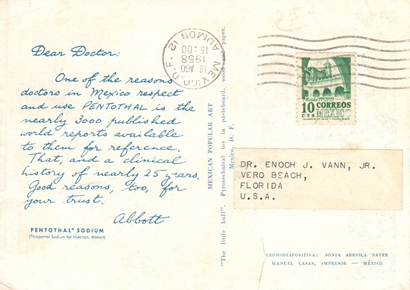 Dear Doctor:
One of the reasons
doctors in Mexico respect
and use PENTOTHAL is the
nearly 3000 published
world reports available
to them for reference.
That, and a clinical
history of nearly 25 years.
Good reasons, too, for
your trust.
Abbott
PENTOTHAL® SODIUM
(Thiopental Sodium for Injection, Abbott)
ADMON 12
15:00
1958
AGO
MEXICO, D.F.
MEXICAN POPULAR ART
"The little bull". Pyrotechnical toy in pasteboard, and paper.
Mexico, D. F.
10 CORREOS
CTS MEXICO
DR. ENOCH J. VANN, JR.
VERO BEACH,
FLORIDA
U.S.A.
CROMODIAPOSITIVA: SONIA ARREOLA BAYER
MANUEL CASAS, IMPRESOR — MÉXICO